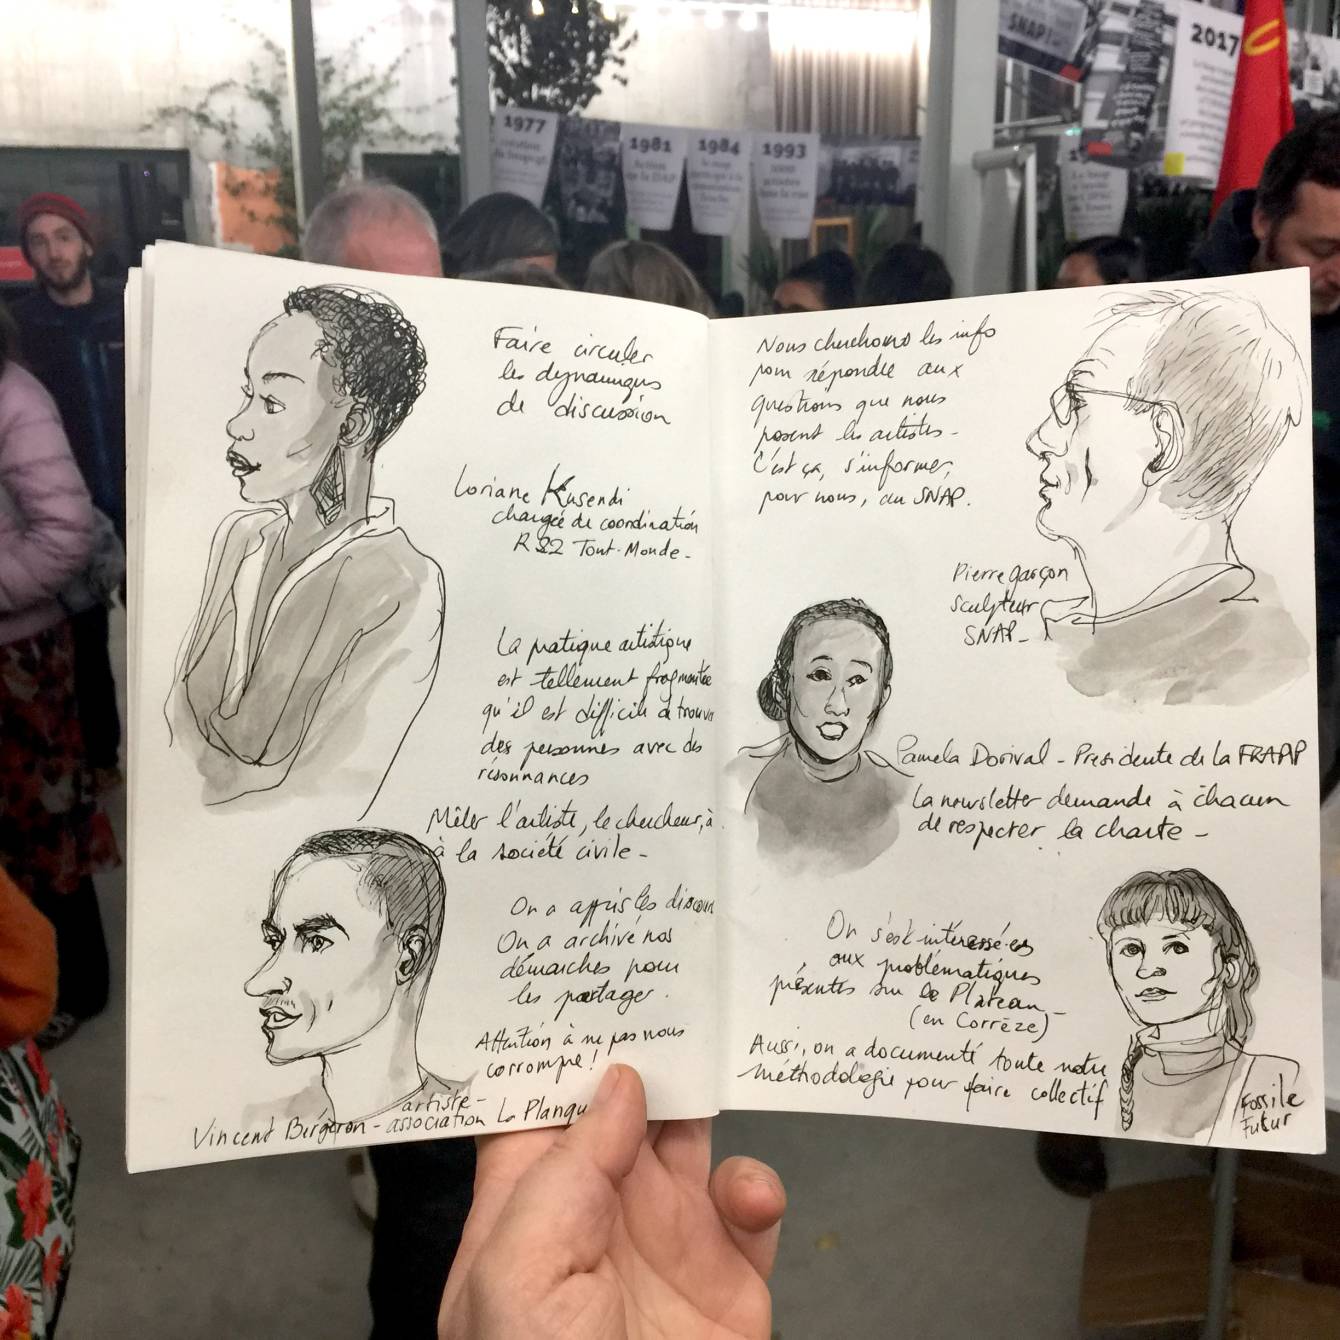 SNAP
2017
1977
création
1981
1984
1993
Faire circuler
les dynamiques
de discussion
Loriane Kusendi
chargée de coordination
R22 Tout-Monde -
La pratique artistique
est tellement fragmentée
qu'il est difficile de trouver
des personnes avec des
résonnances
Mêler l'artiste, le chercheur, à
à la société civile -
On a appris les discours
On a archivé nos
démarches pour
les partager.
Attention à ne pas nous
corrompre !
artiste -
Vincent Bergeron - association La Planqu
Nous cherchons les info
pour répondre aux
questions que nous
posent les artistes -
C'est ça, s'informer,
pour nous, au SNAP.
Pierre garçon
sculpteur
SNAP -
Pamela Dorival - Presidente de la FRAAP
La newsletter demande à chacun
de respecter la charte -
On s'est intéressé·es
aux problématiques
présentes sur le Plateau -
(en Corrèze)
Aussi, on a documenté toute notre
méthodologie pour faire collectif
Fossile
Futur